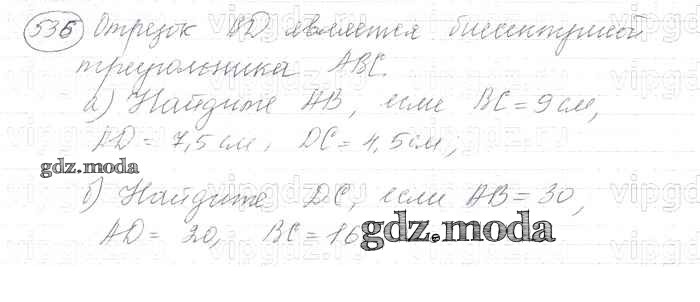 536 Отрезок BD является биссектрисой
треугольника ABC.
а) Найдите AB, если BC = 9 см,
AD = 7,5 см, DC = 4,5 см;
gdz.moda
б) Найдите DC, если AB = 30,
AD = 20, BC = 16
gdz.moda